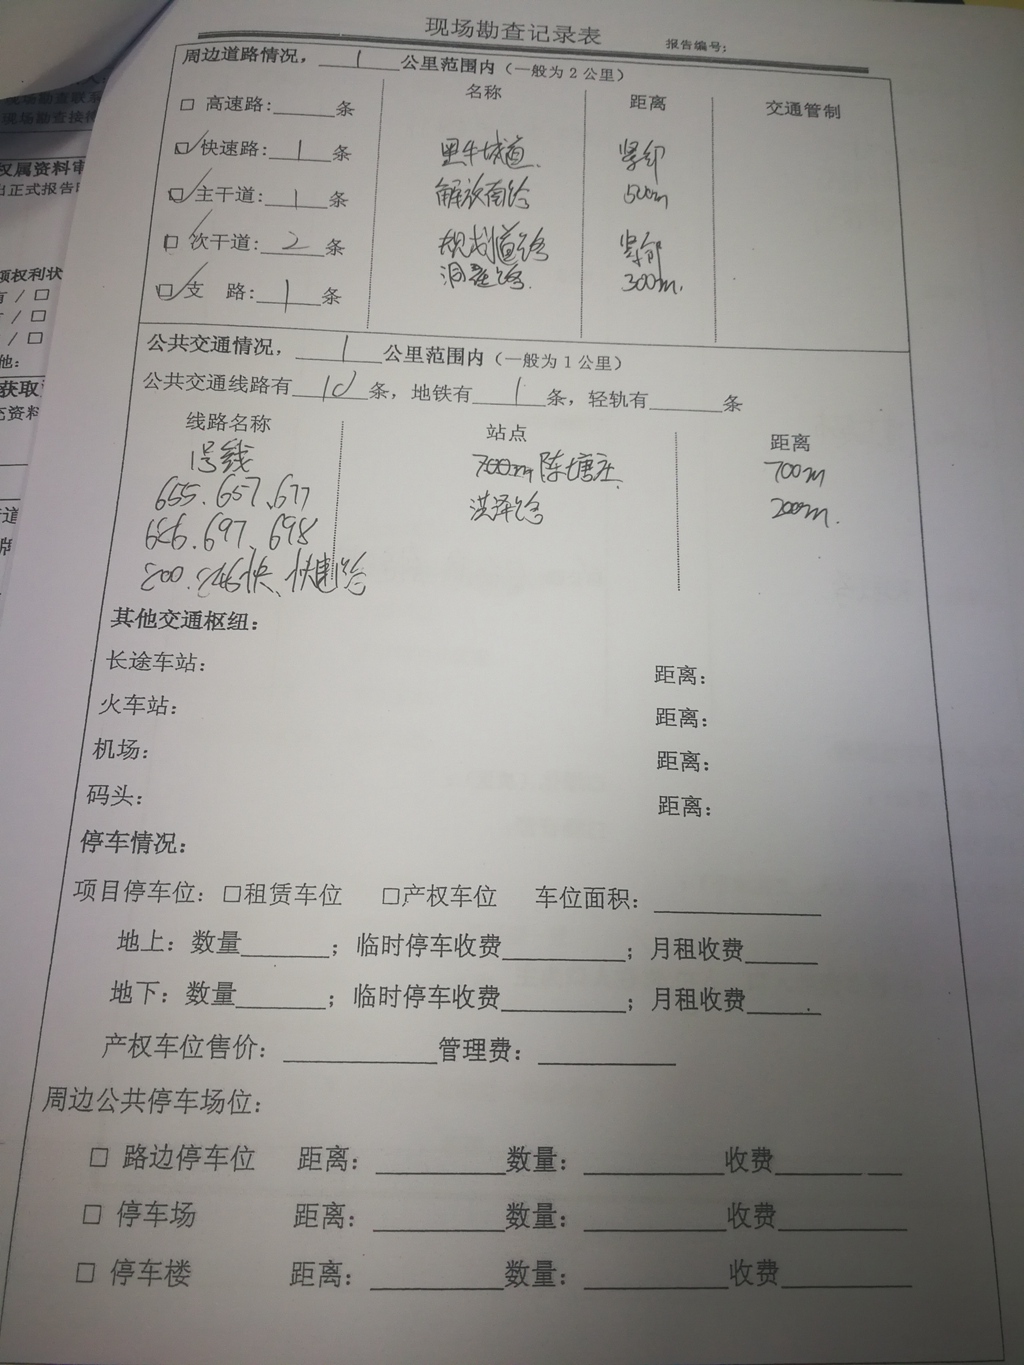 现场勘查记录表
报告编号:
周边道路情况，1公里范围内（一般为2公里）
名称 距离 交通管制
□ 高速路:____条
☑快速路:1条 黑牛城道、 紧邻
☑主干道:1条 解放南路 500m
☑ 次干道:2条 规划道路 紧邻
☑支 路:1条 洞庭路 300m.
公共交通情况，1公里范围内（一般为1公里）
公共交通线路有10条，地铁有1条，轻轨有____条
线路名称 站点 距离
1号线 700m陈塘庄 700m
655、657、677 洪泽路 200m.
686、697、698
快、快速路
其他交通枢纽:
长途车站: 距离:
火车站: 距离:
机场: 距离:
码头: 距离:
停车情况:
项目停车位: □租赁车位 □产权车位 车位面积:____
地上: 数量____; 临时停车收费____; 月租收费____
地下: 数量____; 临时停车收费____; 月租收费____
产权车位售价: ____管理费: ____
周边公共停车场位:
□ 路边停车位 距离: ____数量: ____收费____
□ 停车场 距离: ____数量: ____收费____
□ 停车楼 距离: ____数量: ____收费____